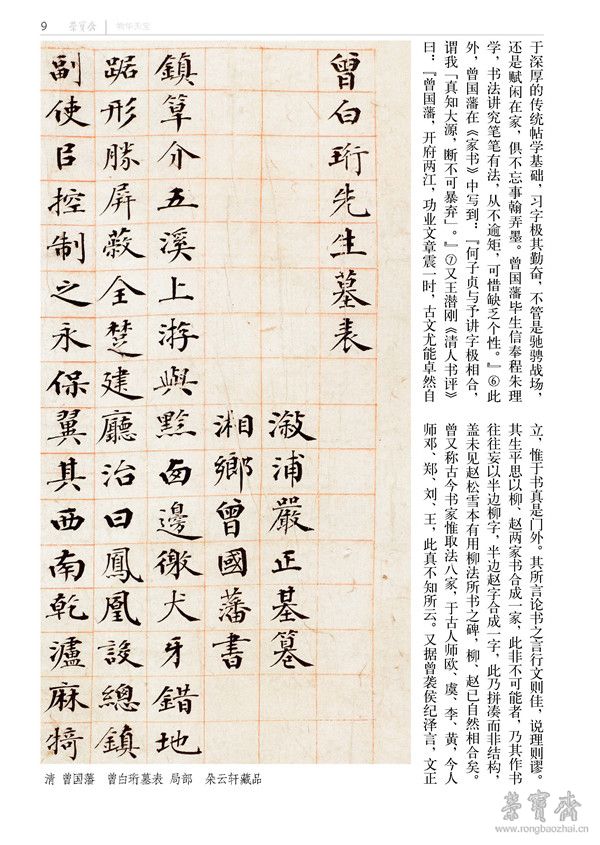 9
榮寶齋
物华天宝
于深厚的传统帖学基础，习字极其勤奋，不管是驰骋战场，
还是赋闲在家，俱不忘事翰弄墨。曾国藩毕生信奉程朱理
学，书法讲究笔笔有法，从不逾矩，可惜缺乏个性。』⑥此
外，曾国藩在《家书》中写到：『何子贞与予讲字极相合，
谓我「真知大源，断不可暴弃」。』⑦又王潜刚《清人书评》
曰：『曾国藩，开府两江，功业文章震一时，古文尤能卓然自
立，惟于书真是门外。其所言论书之言行文则佳，说理则谬。
其生平思以柳、赵两家书合成一家，此非不可能者，乃其作书
往往妄以半边柳字，半边赵字合成一字，此乃拼凑而非结构，
盖未见赵松雪本有用柳法所书之碑，柳、赵已自然相合矣。
曾又称古今书家惟取法八家，于古人师欧、虞、李、黄，今人
师邓、郑、刘、王，此真不知所云。又据曾袭侯纪泽言，文正
曾白珩先生墓表
溆浦嚴正基篹
湘鄉曾國藩書
鎮筸介五溪上游與黔囪邊徼犬牙錯地
踞形勝屏蔽全楚建廳治曰鳳凰設總鎮
副使臣控制之永保翼其西南乾瀘麻犄
清 曾国藩 曾白珩墓表 局部 朵云轩藏品
榮寶齋
www.rongbaozhai.cn